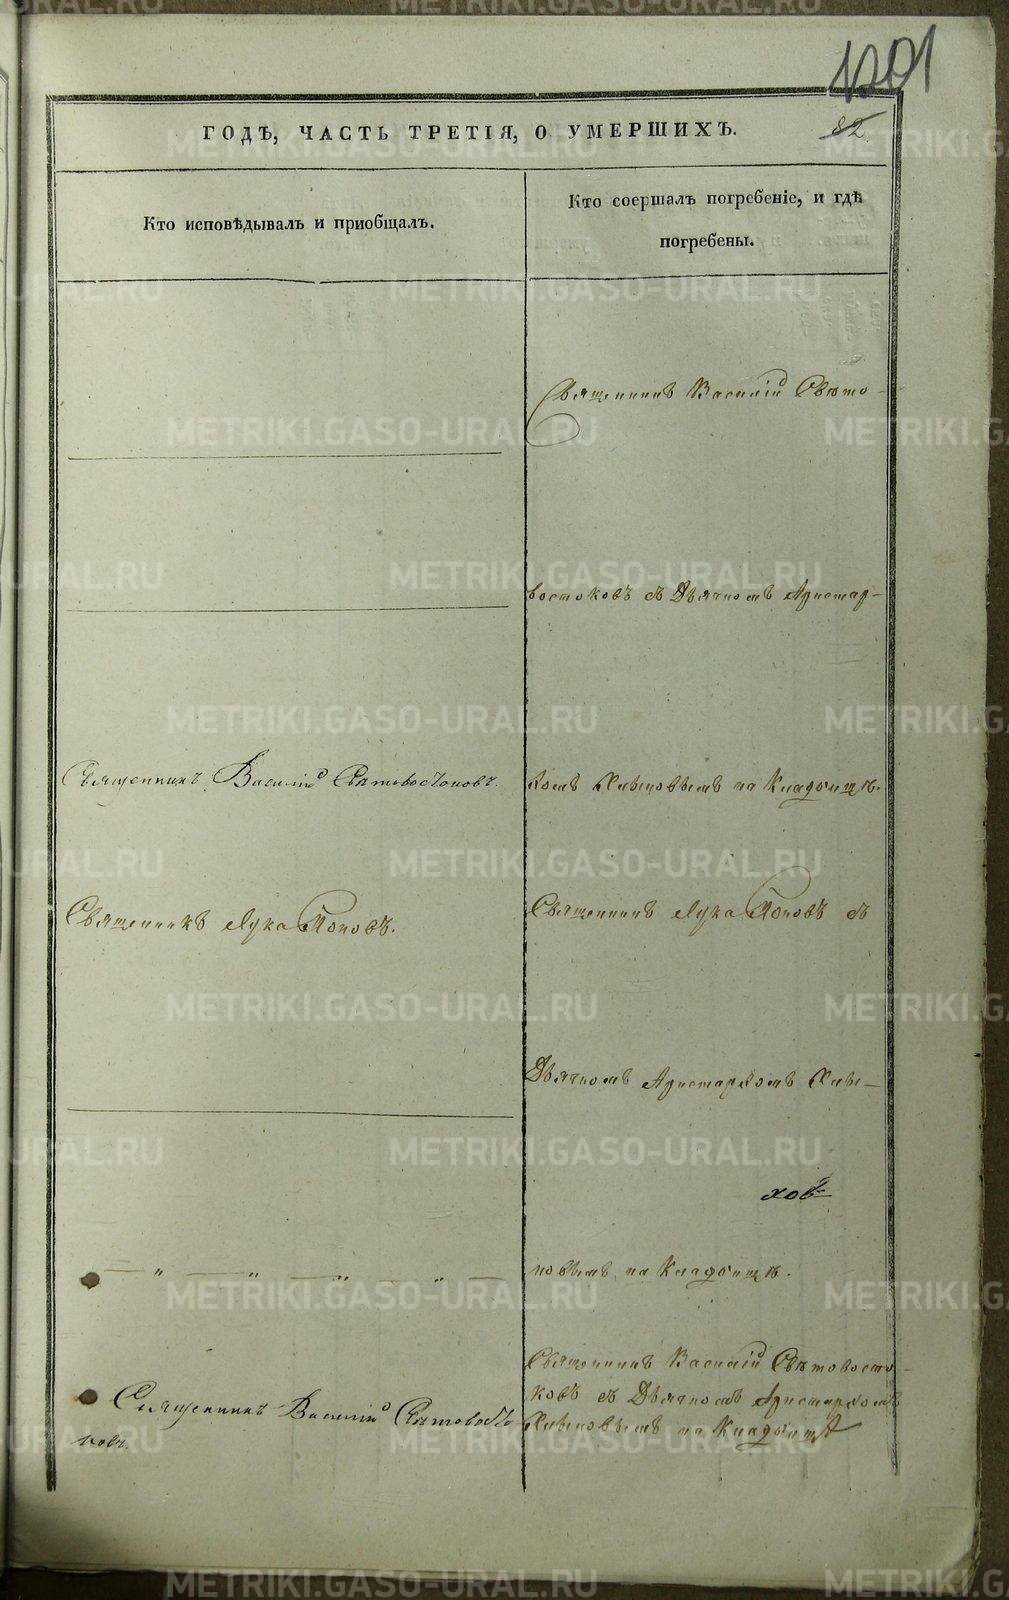 1201
82
ГОДѢ, ЧАСТЬ ТРЕТІЯ, О УМЕРШИХЪ.
Кто исповѣдывалъ и пріобщалъ.
Кто соершалъ погребеніе, и гдѣ
погребены.
Священникъ Василій Свѣто-
востоковъ съ Дьячкомъ Аристар-
Священникъ Василій Свѣтовостоковъ.
хомъ на Кладбищѣ.
Священникъ Лука Поповъ.
Священникъ Лука Поповъ съ
Дьячкомъ Аристархомъ
хов
новымъ на Кладбищѣ.
Священникъ Василій Свѣтовосто-
ковъ.
Священникъ Василій Свѣтовосто-
ковъ съ Дьячкомъ Аристархомъ
на Кладбищѣ
METRIKI.GASO-URAL.RU